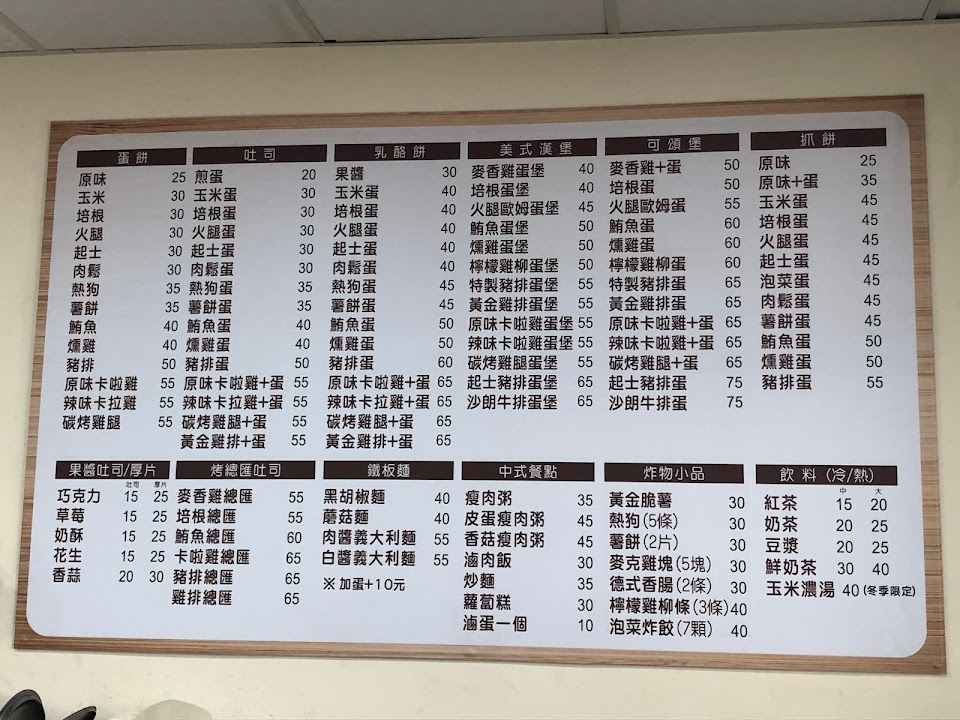 蛋餅
原味 25
玉米 30
培根 30
火腿 30
起士 30
肉鬆 30
熱狗 35
薯餅 35
鮪魚 40
燻雞 40
豬排 50
原味卡啦雞 55
辣味卡拉雞 55
碳烤雞腿 55
吐司
煎蛋 20
玉米蛋 30
培根蛋 30
火腿蛋 30
起士蛋 30
肉鬆蛋 30
熱狗蛋 35
薯餅蛋 35
鮪魚蛋 40
燻雞蛋 40
豬排蛋 50
原味卡啦雞+蛋 55
辣味卡拉雞+蛋 55
碳烤雞腿+蛋 55
黃金雞排+蛋 55
乳酪餅
果醬 30
玉米蛋 40
培根蛋 40
火腿蛋 40
起士蛋 40
肉鬆蛋 40
熱狗蛋 45
薯餅蛋 45
鮪魚蛋 50
燻雞蛋 50
豬排蛋 60
原味卡啦雞+蛋 65
辣味卡拉雞+蛋 65
碳烤雞腿+蛋 65
黃金雞排+蛋 65
美式漢堡
麥香雞蛋堡 40
培根蛋堡 40
火腿歐姆蛋堡 45
鮪魚蛋堡 50
燻雞蛋堡 50
檸檬雞柳蛋堡 50
特製豬排蛋堡 55
黃金雞排蛋堡 55
原味卡啦雞蛋堡 55
辣味卡啦雞蛋堡 55
碳烤雞腿蛋堡 55
起士豬排蛋堡 65
沙朗牛排蛋堡 65
可頌堡
麥香雞+蛋 50
培根蛋 50
火腿歐姆蛋 55
鮪魚蛋 60
燻雞蛋 60
檸檬雞柳蛋 60
特製豬排蛋 65
黃金雞排蛋 65
原味卡啦雞+蛋 65
辣味卡啦雞+蛋 65
碳烤雞腿+蛋 65
起士豬排蛋 75
沙朗牛排蛋 75
抓餅
原味 25
原味+蛋 35
玉米蛋 45
培根蛋 45
火腿蛋 45
起士蛋 45
泡菜蛋 45
肉鬆蛋 45
薯餅蛋 45
鮪魚蛋 50
燻雞蛋 50
豬排蛋 55
果醬吐司/厚片
吐司 厚片
巧克力 15 25
草莓 15 25
奶酥 15 25
花生 15 25
香蒜 20 30
烤總匯吐司
麥香雞總匯 55
培根總匯 55
鮪魚總匯 60
卡啦雞總匯 65
豬排總匯 65
雞排總匯 65
鐵板麵
黑胡椒麵 40
蘑菇麵 40
肉醬義大利麵 55
白醬義大利麵 55
※加蛋+10元
中式餐點
瘦肉粥 35
皮蛋瘦肉粥 45
香菇瘦肉粥 45
滷肉飯 30
炒麵 35
蘿蔔糕 30
滷蛋一個 10
炸物小品
黃金脆薯 30
熱狗(5條) 30
薯餅(2片) 30
麥克雞塊(5塊) 30
德式香腸(2條) 30
檸檬雞柳條(3條) 40
泡菜炸餃(7顆) 40
飲料(冷/熱)
中 大
紅茶 15 20
奶茶 20 25
豆漿 20 25
鮮奶茶 30 40
玉米濃湯 40 (冬季限定)